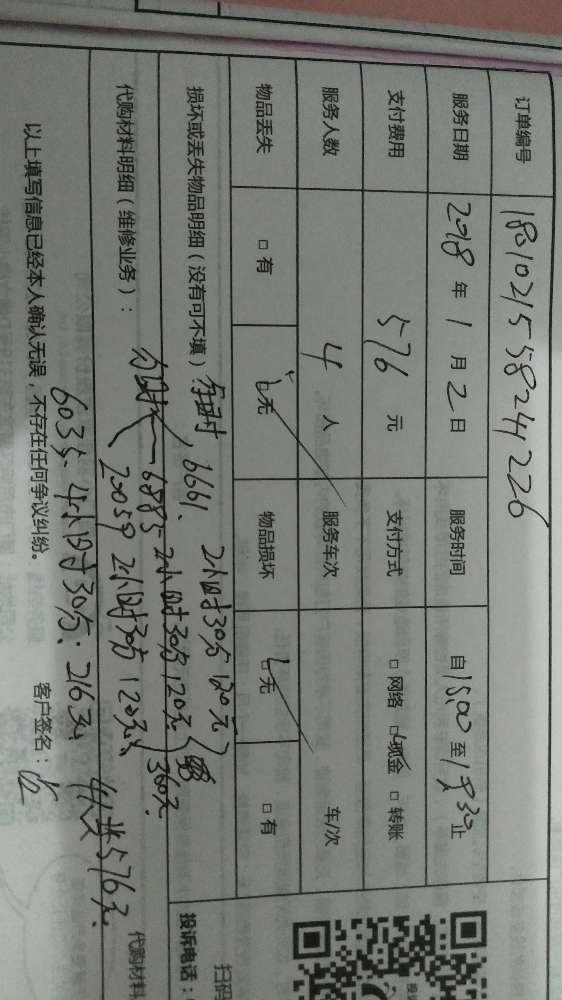 订单编号 180102155824226
服务日期 2018 年 1 月 2 日 服务时间 自 15:00 至 19:30 止
支付费用 576 元 支付方式 □ 网络 □ 现金 □ 转账
服务人数 4 人 服务车次 车/次
物品丢失 □ 有 □ 无 物品损坏 □ 无 □ 有
损坏或丢失物品明细（没有可不填）：
6661、 2小时30分 120元
6883 2小时30分 120元
20059 2小时30分 120元、 360元
代购材料明细（维修业务）：
6035、4小时30分：216元、
4人共576元、
以上填写信息已经本人确认无误，不存在任何争议纠纷。 客户签名：
扫码
投诉电话：
代购材料